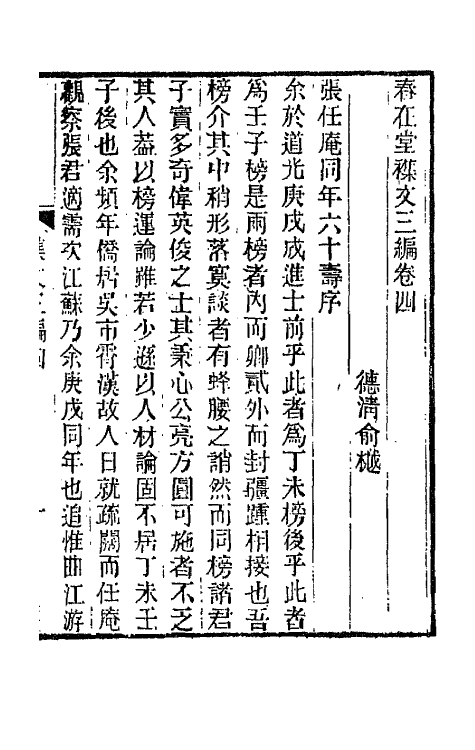 春在堂襍文三編卷四
德清俞樾
張任庵同年六十壽序
余於道光庚戌成進士前乎此者爲丁未榜後乎此者
爲壬子榜是兩榜者內而卿貳外而封疆踵相接也吾
榜介其中稍形落寞談者有蜂腰之誚然而同榜諸君
子實多奇偉英俊之士其秉心公亮方圓可施者不乏
其人蓋以榜運論雖若少遜以人材論固不居丁未壬
子後也余頻年僑居吳市霄漢故人日就疏闊而任庵
觀察張君適需次江蘇乃余庚戌同年也追惟曲江游
襍文三編四 一